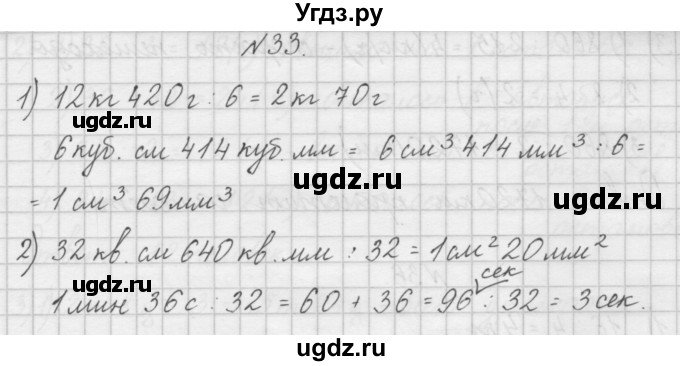 Угдз.ру
№33.
1) 12кг 420г : 6 = 2кг 70г
ugdz.ru ugdz.ru
6куб. см 414 куб. мм = 6 см³ 414 мм³ : 6 =
ugdz.ru
= 1 см³ 69мм³
ugdz.ru
2) 32 кв. см 640 кв. мм : 32 = 1см² 20мм²
ugdz.ru
сек
1 мин 36 с : 32 = 60 + 36 = 96 : 32 = 3 сек.
ugdz.ru
ugdz.ru